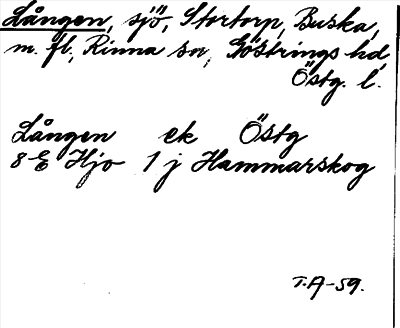 Lången, sjö, Stortorp, Buska,
m. fl., Rinna sn, Göstrings hd,
Östg. l.
Lången ek Östg
8 E Hjo 1 j Hammarskog
T.A-59.